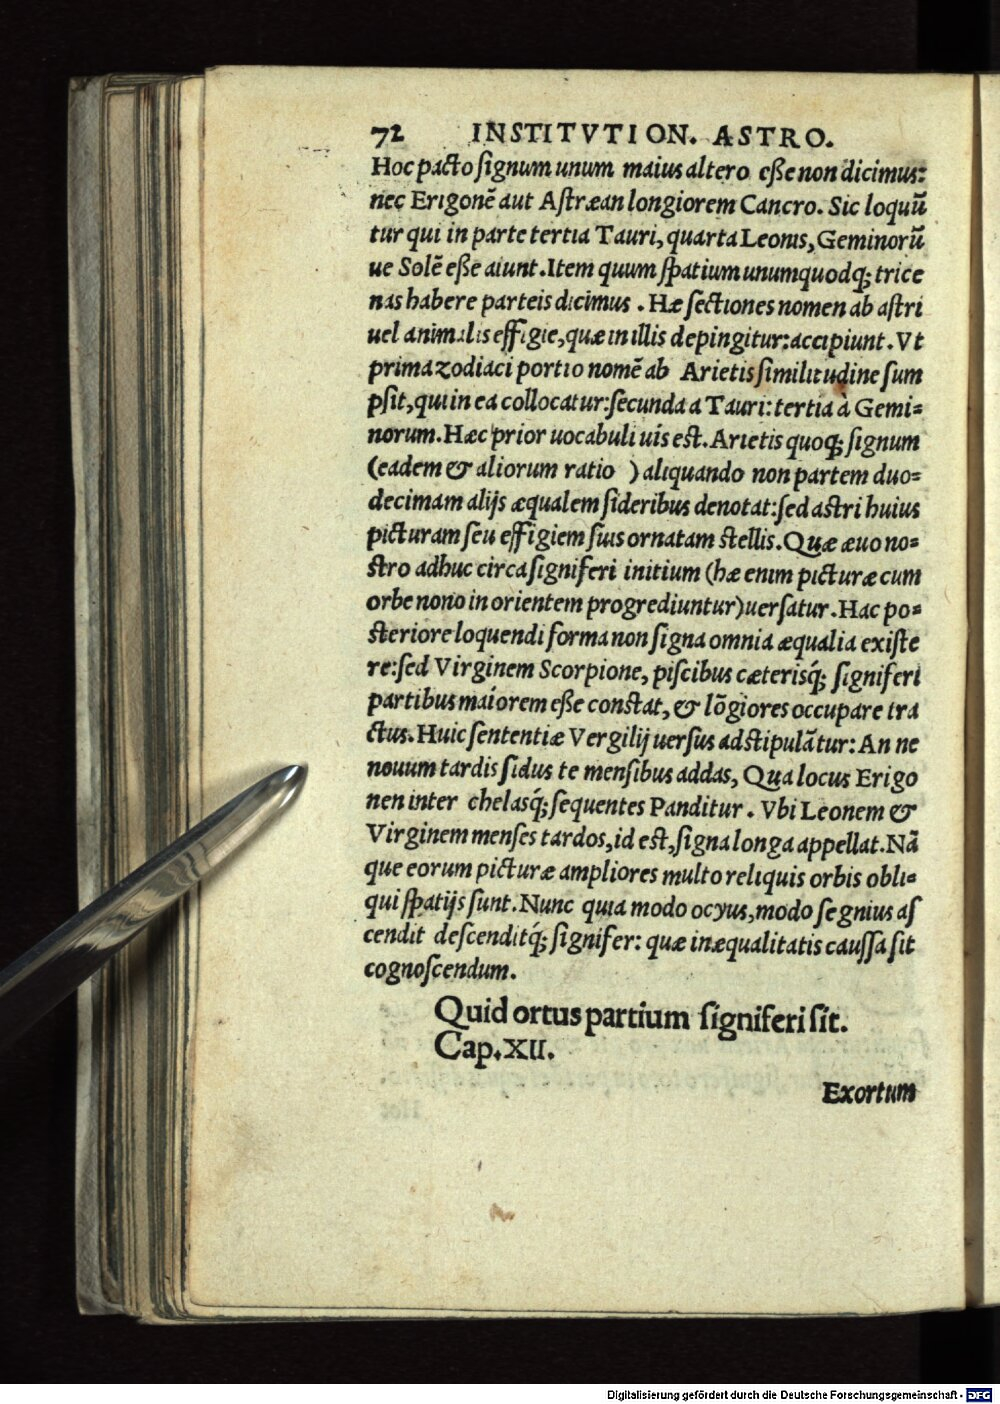 72 INSTITVTION. ASTRO.
Hoc pacto ſignum unum maius altero eße non dicimus:
nec Erigonē aut Aſtræan longiorem Cancro. Sic loquū
tur qui in parte tertia Tauri, quarta Leonis, Geminorū
ue Solē eße aiunt. Item quum ſpatium unumquodq; trice
nas habere parteis dicimus. Hæ ſectiones nomen ab aſtri
uel animalis effigie, quæ in illis depingitur: accipiunt. Vt
prima zodiaci portio nomē ab Arietis ſimilitudine ſum
pſit, qui in ea collocatur: ſecunda a Tauri: tertia à Gemi=
norum. Hæc prior uocabuli uis est. Arietis quoq; ſignum
(eadem & aliorum ratio ) aliquando non partem duo=
decimam alijs æqualem ſideribus denotat: ſed astri huius
picturam ſeu effigiem ſuis ornatam stellis. Quæ æuo no=
stro adhuc circa ſigniferi initium (hæ enim picturæ cum
orbe nono in orientem progrediuntur) uerſatur. Hac po=
steriore loquendi forma non ſigna omnia æqualia exiſte
re: ſed Virginem Scorpione, piſcibus cæterisq́; ſigniferi
partibus maiorem eße constat, & lōgiores occupare tra
ctus. Huic ſententiæ Vergilij uerſus adstipulātur: An ne
nouum tardis ſidus te menſibus addas, Qua locus Erigo
nen inter chelasq́; ſequentes Panditur. Vbi Leonem &
Virginem menſes tardos, id est, ſigna longa appellat. Nā
que eorum picturæ ampliores multo reliquis orbis obli=
qui ſpatijs ſunt. Nunc quia modo ocyus, modo ſegnius aſ
cendit deſcenditq́; ſignifer: quæ inæqualitatis cauſſa ſit
cognoſcendum.
Quid ortus partium ſigniferi ſit.
Cap. XII.
Exortum
Digitalisierung gefördert durch die Deutsche Forschungsgemeinschaft - DFG